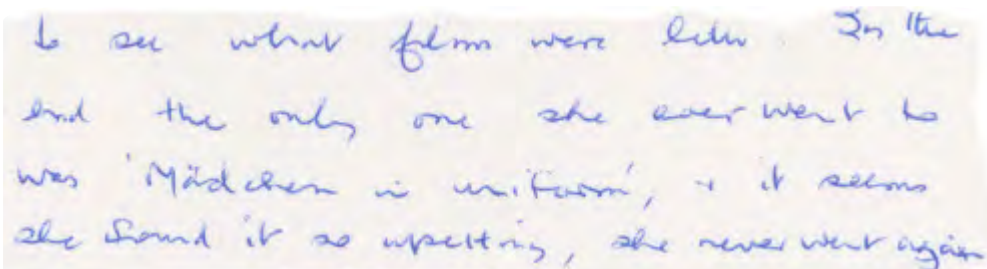 to see what films were like. In the
end the only one she ever went to
was 'Mädchen in uniform', + it seems
she found it so upsetting, she never went again